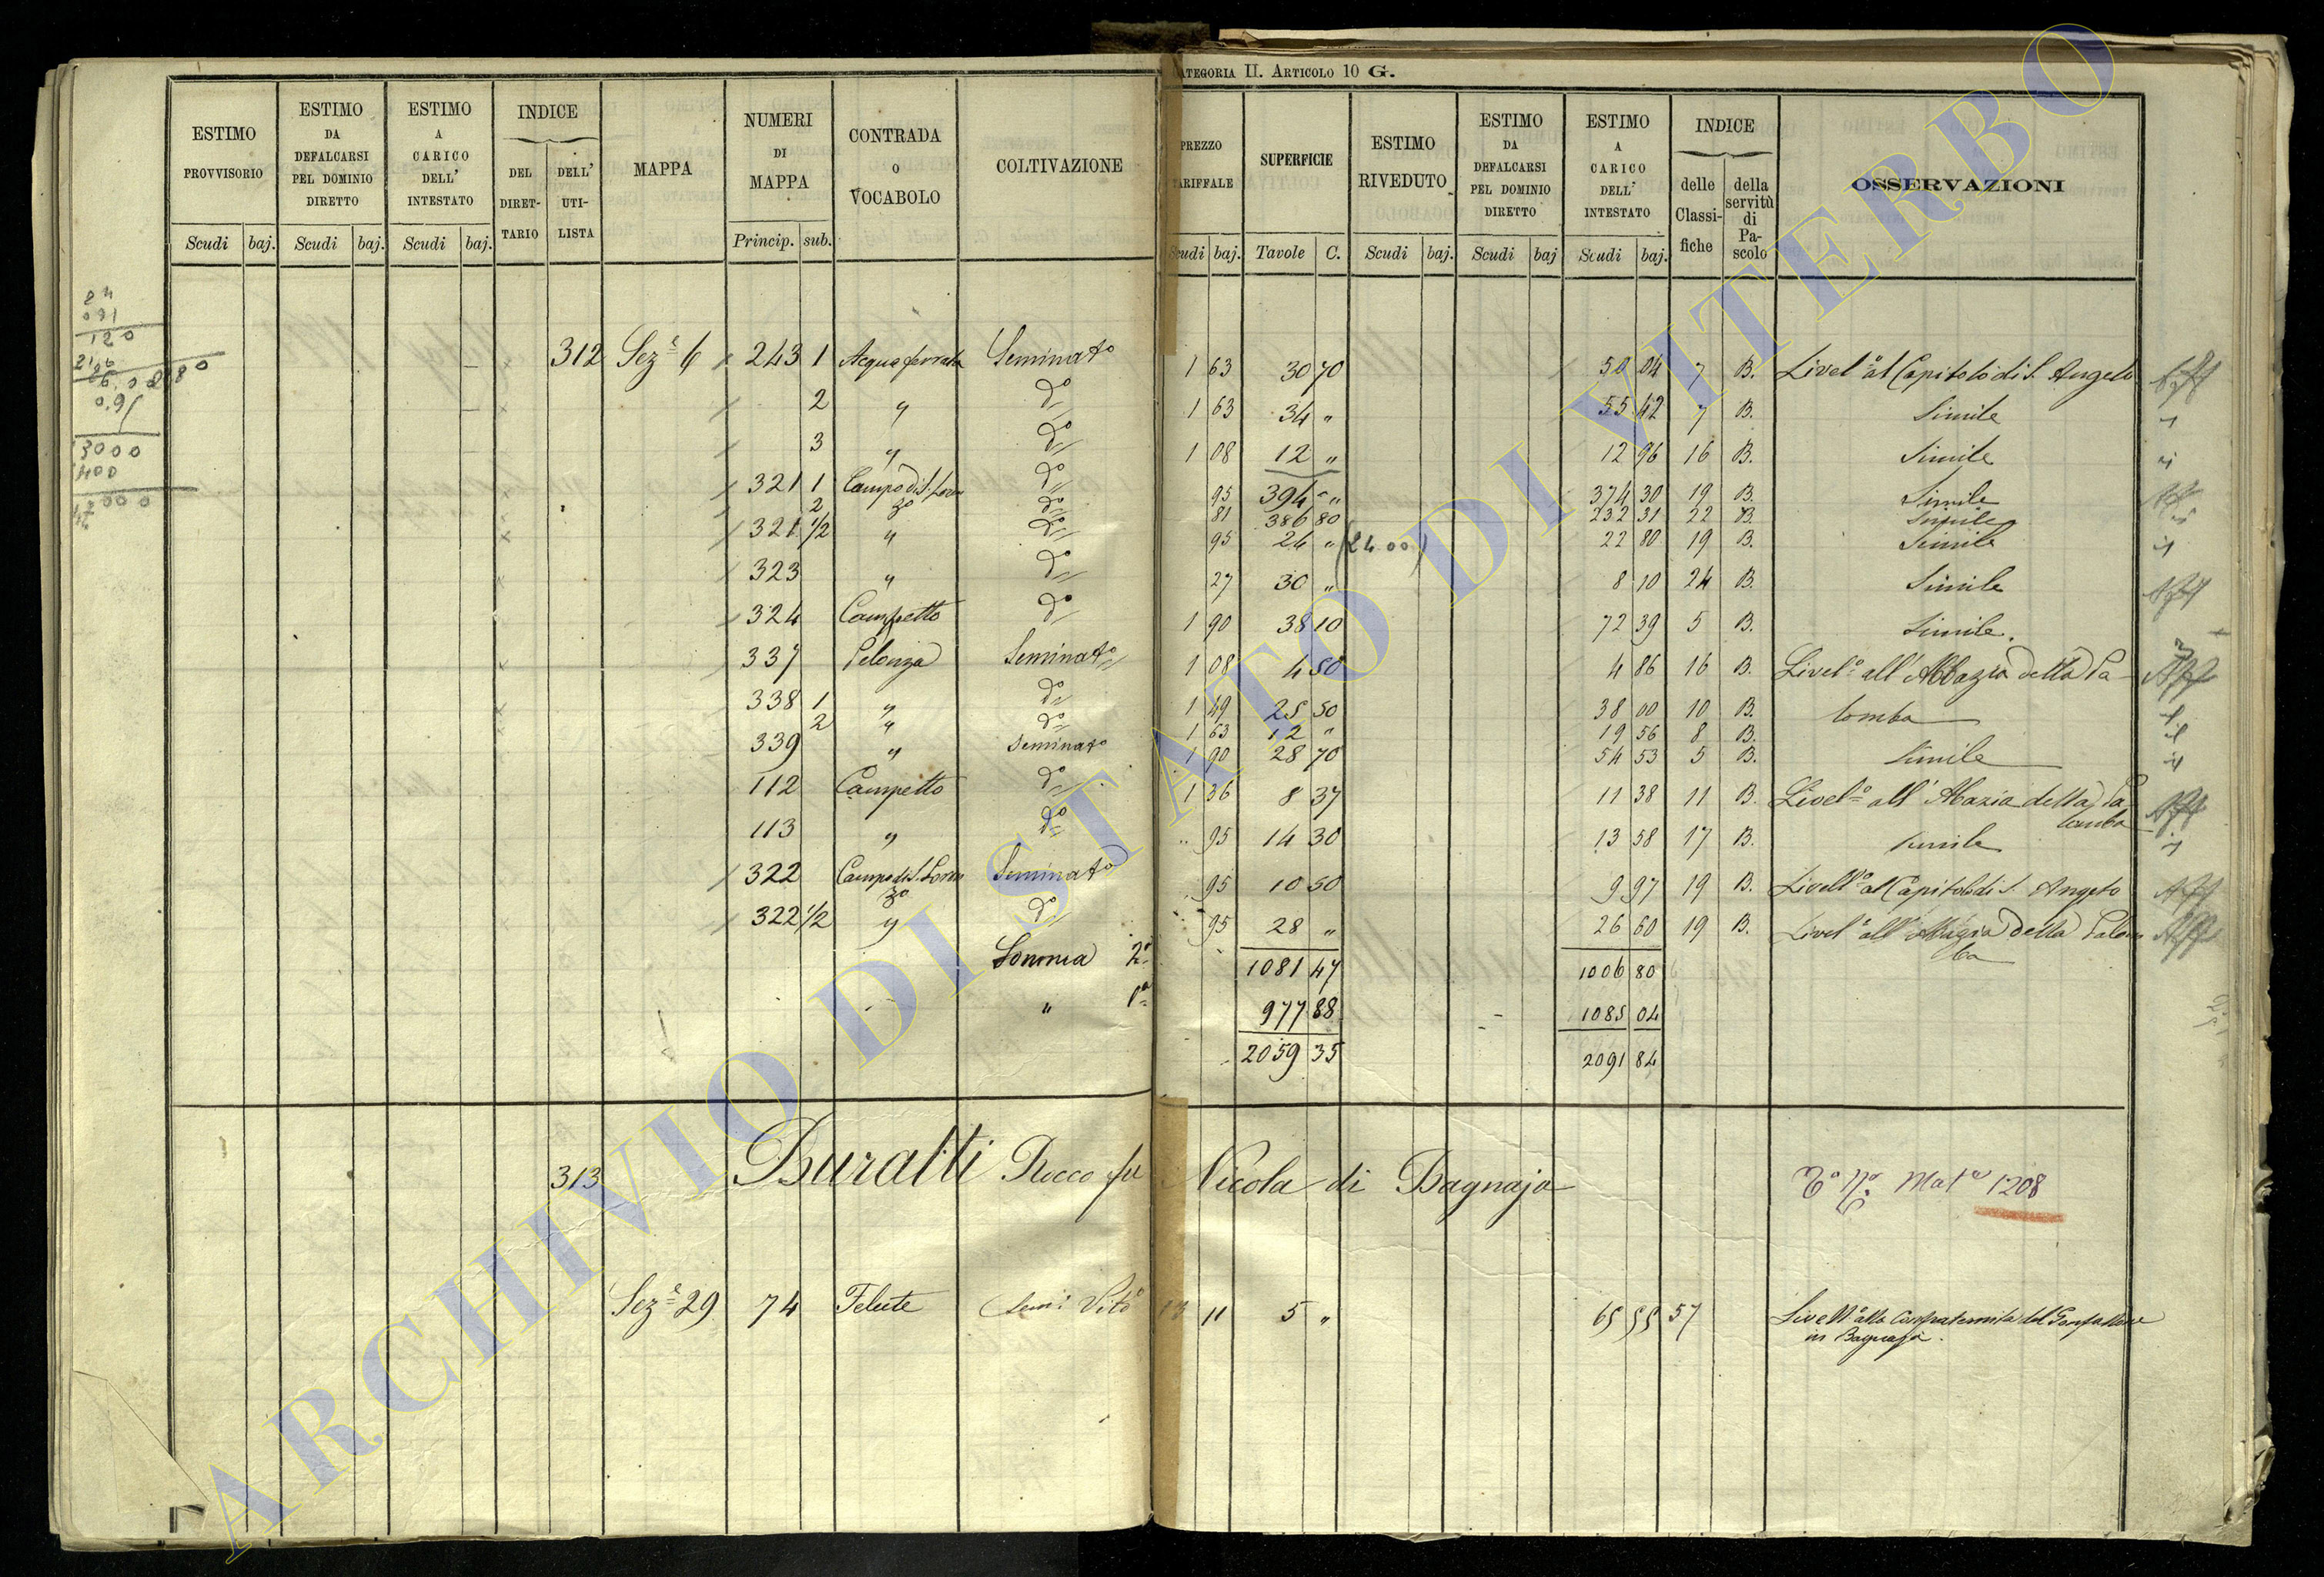 CATEGORIA II. ARTICOLO 10 G.
ESTIMO PROVVISORIO | ESTIMO DA DEFALCARSI PEL DOMINIO DIRETTO | ESTIMO A CARICO DELL' INTESTATO | INDICE DEL DIRETTARIO | DELL' UTILISTA | MAPPA | NUMERI DI MAPPA | CONTRADA O VOCABOLO | COLTIVAZIONE | PREZZO TARIFFALE | SUPERFICIE | ESTIMO RIVEDUTO | ESTIMO DA DEFALCARSI PEL DOMINIO DIRETTO | ESTIMO A CARICO DELL' INTESTATO | INDICE delle Classifiche | della servitù di Pascolo | OSSERVAZIONI
Scudi | baj. | Scudi | baj. | Scudi | baj. | Princip. | sub. | Scudi | baj. | Tavole | C. | Scudi | baj. | Scudi | baj | Scudi | baj.
312 Sez.e 6 243 1 Acqua ferrata Seminato 1 63 30 70 50 04 7 B. Livel.o al Capitolo di S. Angelo
2 " do 1 63 34 " 55 42 7 B. Simile
3 " do 1 08 12 " 12 96 16 B. Simile
321 1 Campo di S. Loren do 95 394 " 374 30 19 B. Simile
2 zo do 81 386 80 232 31 22 B. Simile
321 1/2 " do 95 24 " (24 00) 22 80 19 B. Simile
323 " do 27 30 " 8 10 24 B. Simile
324 Campetto do 1 90 38 10 72 39 5 B. Simile.
337 Pelonza Seminato 1 08 4 50 4 86 16 B. Livel.o all' Abbazia della Pa
338 1 " do 1 49 25 50 38 00 10 B. lomba
2 " do 1 63 12 " 19 56 8 B.
339 " Seminato 1 90 28 70 54 53 5 B. Simile
112 Campetto do 1 36 8 37 11 38 11 B. Livel.o all' Abazia della Pa
lomba
113 " do " 95 14 30 13 58 17 B. Simile
322 Campo di S. Loren Seminato 95 10 50 9 97 19 B. Livell.o al Capitolo di S. Angelo
zo
322 1/2 " do 95 28 " 26 60 19 B. Livel.o all' Abazia della Palom
ba
Somma 2a 1081 47 1006 80
" 1a 977 88 1085 04
2059 35 2091 84
313 Buratti Rocco fu Nicola di Bagnaja Mat.a 1208
Sez.e 29 74 Felcete Sem.o Vit.o 13 11 5 " 65 55 57 Livell.o alla Confraternita del Gonfallone
in Bagnaja.
ARCHIVIO DI STATO DI VITERBO